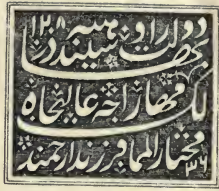 دولت راو سیندهیه ۱۲۰۸
بها
مهاراجه عالیجاه
مختار الملک فرزند ارجمند